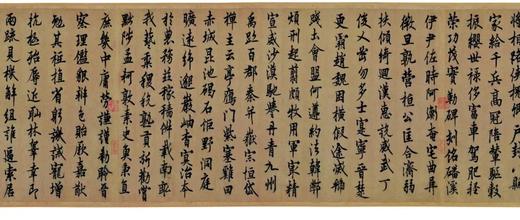 將相路俠槐卿戶封八縣
家給千兵高冠陪輦驅轂
振纓世祿侈富車駕肥輕策
功茂實勒碑刻銘磻溪
伊尹佐時阿衡奄宅曲阜
微旦孰營桓公匡合濟弱
扶傾綺迴漢惠說感武丁
俊乂密勿多士寔寧晉楚
更霸趙魏困橫假途滅虢
踐土會盟何遵約法韓弊
煩刑起翦頗牧用軍最精
宣威沙漠馳譽丹青九州
禹跡百郡秦并嶽宗恒岱
禪主云亭雁門紫塞雞田
赤城昆池碣石鉅野洞庭
曠遠綿邈巖岫杳冥治本
於農務茲稼穡俶載南畝
我藝黍稷稅熟貢新勸賞
黜陟孟軻敦素史魚秉直
庶幾中庸勞謙謹勅聆音
察理鑑貌辨色貽厥嘉猷
勉其祗植省躬譏誡寵增
抗極殆辱近恥林皋幸即
兩疏見機解組誰逼索居